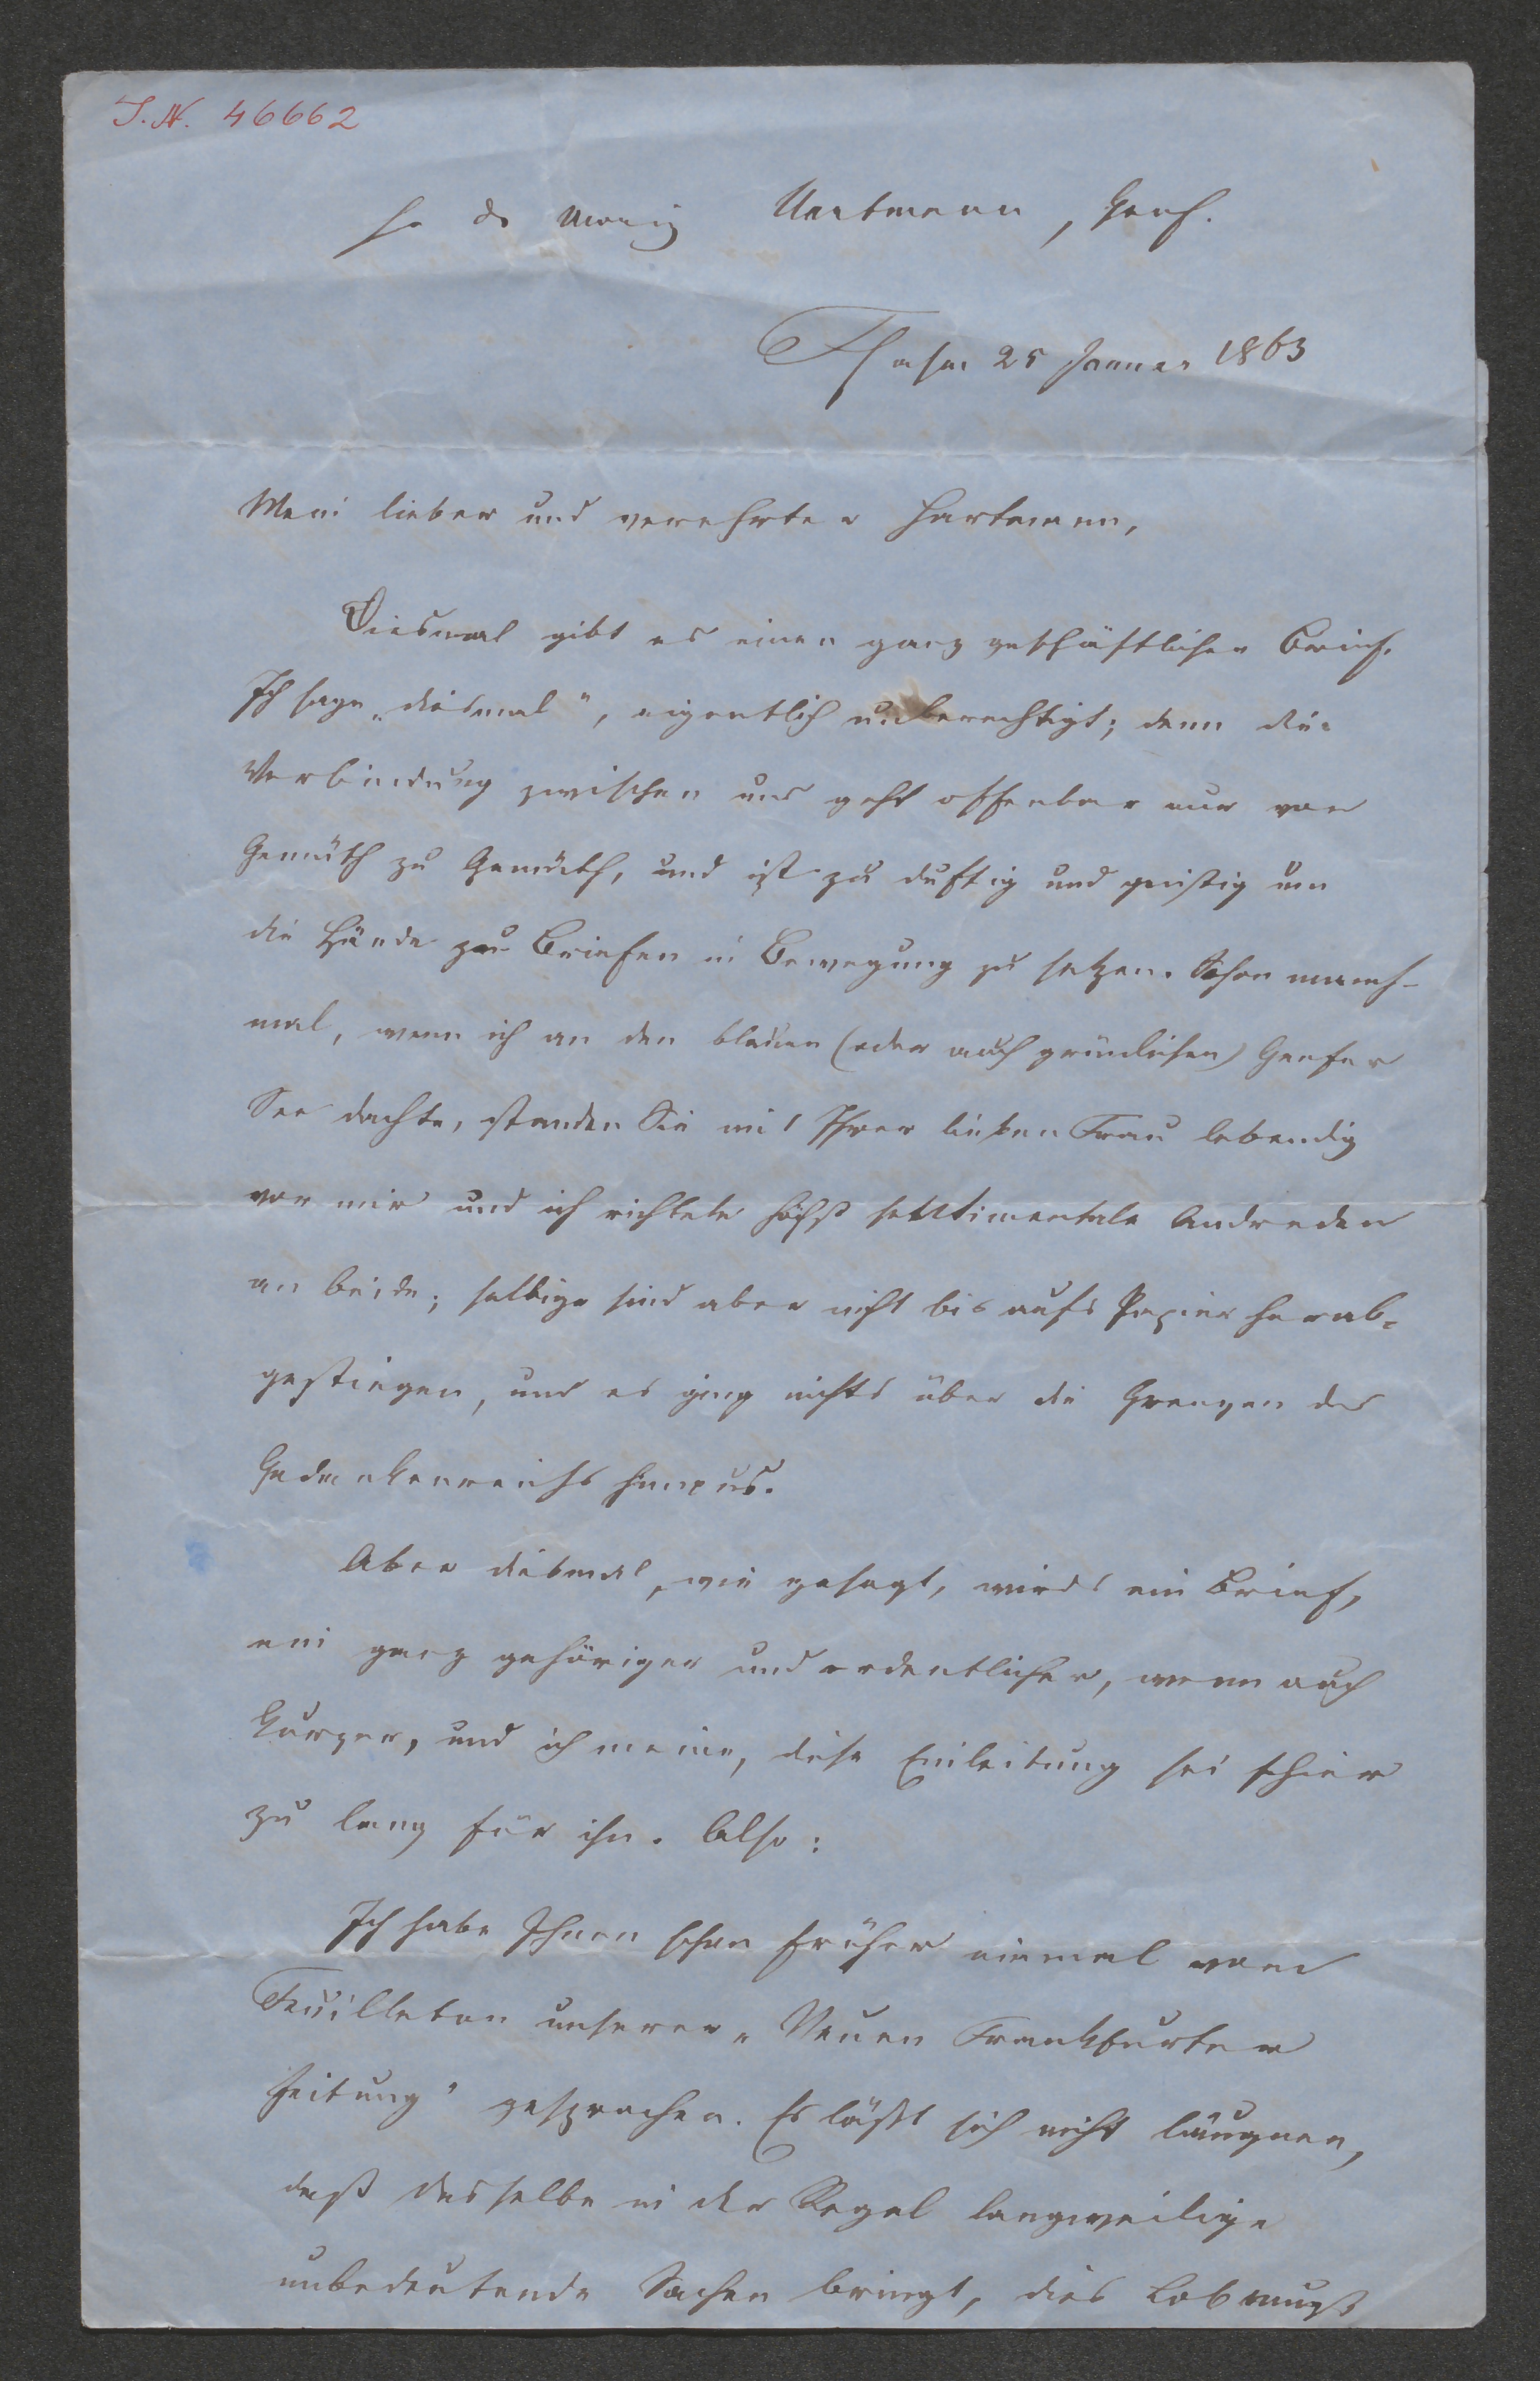 I.N. 46662
Hn Dr Moriz Hartmann, Genf.
25 Januar 1863
Mein lieber und verehrter Hartmann,
Diesmal gibt es einen ganz geschäftlichen Brief.
Ich sage „diesmal“, eigentlich unberechtigt; denn die
Verbindung zwischen uns geht offenbar nur von
Gemüth zu Gemüth, und ist zu duftig und geistig um
die Hände zu Briefen in Bewegung zu setzen. Schon manch-
mal, wenn ich an den blauen (oder auch grünlichen) Genfer
See dachte, standen Sie mit Ihrer lieben Frau lebendig
vor mir und ich richtete höchst sentimentale Andreden
an beide; selbige sind aber nicht bis aufs Papier herab-
gestiegen, und es ging nichts über die Grenzen des
Gedankenreichs hinaus.
Aber diesmal, wie gesagt, wirds ein Brief,
ein ganz gehöriger und ordentlicher, wenn auch
kurzer, und ich meine, diese Einleitung sei schier
zu lang für ihn. Also:
Ich habe Ihnen schon früher einmal vom
Feuilleton unserer „Neuen Frankfurter
Zeitung“ gesprochen. Es läßt sich nicht läugnen,
daß dasselbe in der Regel langweilige
unbedeutende Sachen bringt, dies Lob muß